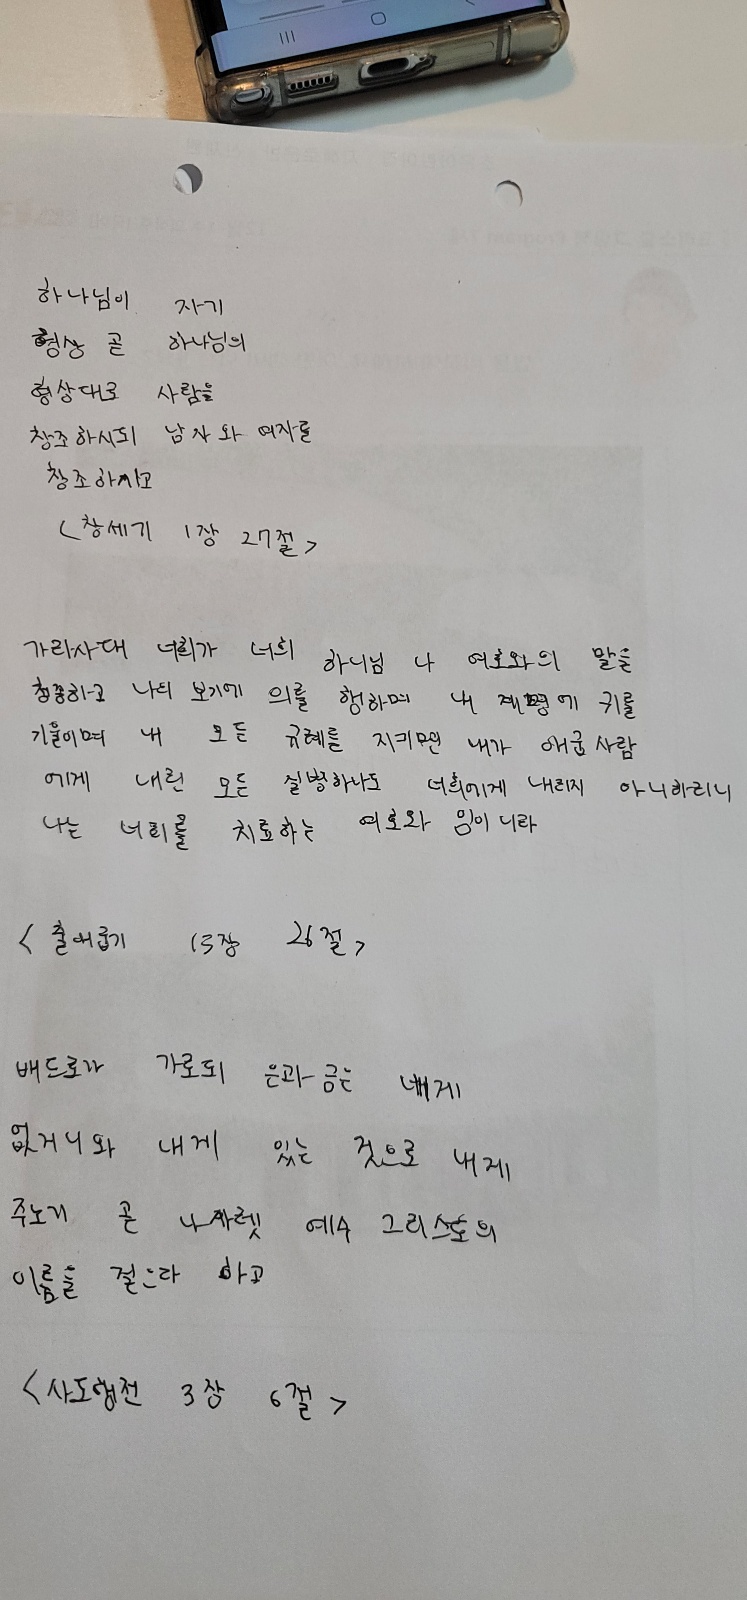 하나님이 자기
형상 곧 하나님의
형상대로 사람을
창조하시되 남자와 여자를
창조하시고
<창세기 1장 27절>
가리사대 너희가 너희 하나님 나 여호와의 말을
청종하고 나의 보기에 의를 행하며 내 계명에 귀를
기울이며 내 모든 규례를 지키면 내가 애굽사람
에게 내린 모든 질병하나도 너희에게 내리지 아니하리니
나는 너희를 치료하는 여호와 임이니라
<출애굽기 15장 26절>
베드로가 가로되 은과 금은 내게
없거니와 내게 있는 것으로 네게
주노니 곧 나사렛 예수 그리스도의
이름을 걸으라 하고
<사도행전 3장 6절>